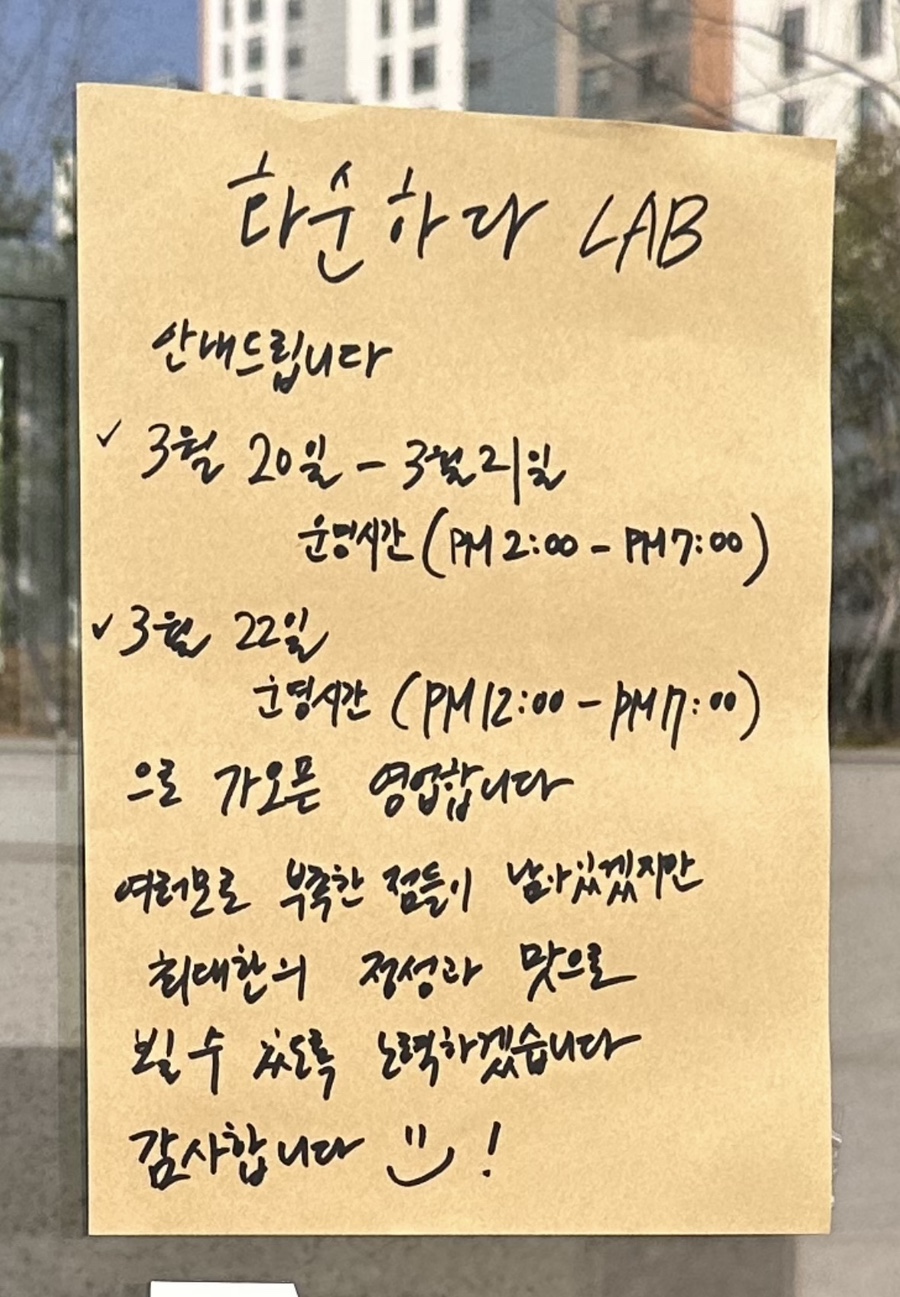 화순하다 LAB
안내드립니다
✓ 3월 20일 - 3월 21일
운영시간 (PM 2:00 - PM 7:00)
✓ 3월 22일
운영시간 (PM 12:00 - PM 7:00)
으로 가오픈 영업합니다
여러모로 부족한 점들이 남아있겠지만
최대한의 정성과 맛으로
보일 수 있도록 노력하겠습니다
감사합니다 !